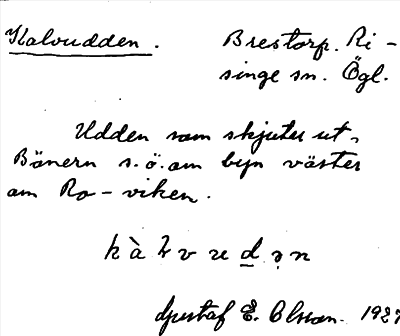 Kalvudden. Brestorp. Ri-
singe sn. Ögl.
Udden som skjuter ut i
Bönern s.ö. om byn väster
om Ro-viken.
Gustaf E. Olsson. 1927